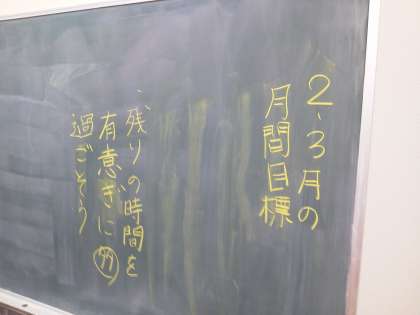 2、3月の
月間目標
残りの時間を
有意ぎに
過ごそう